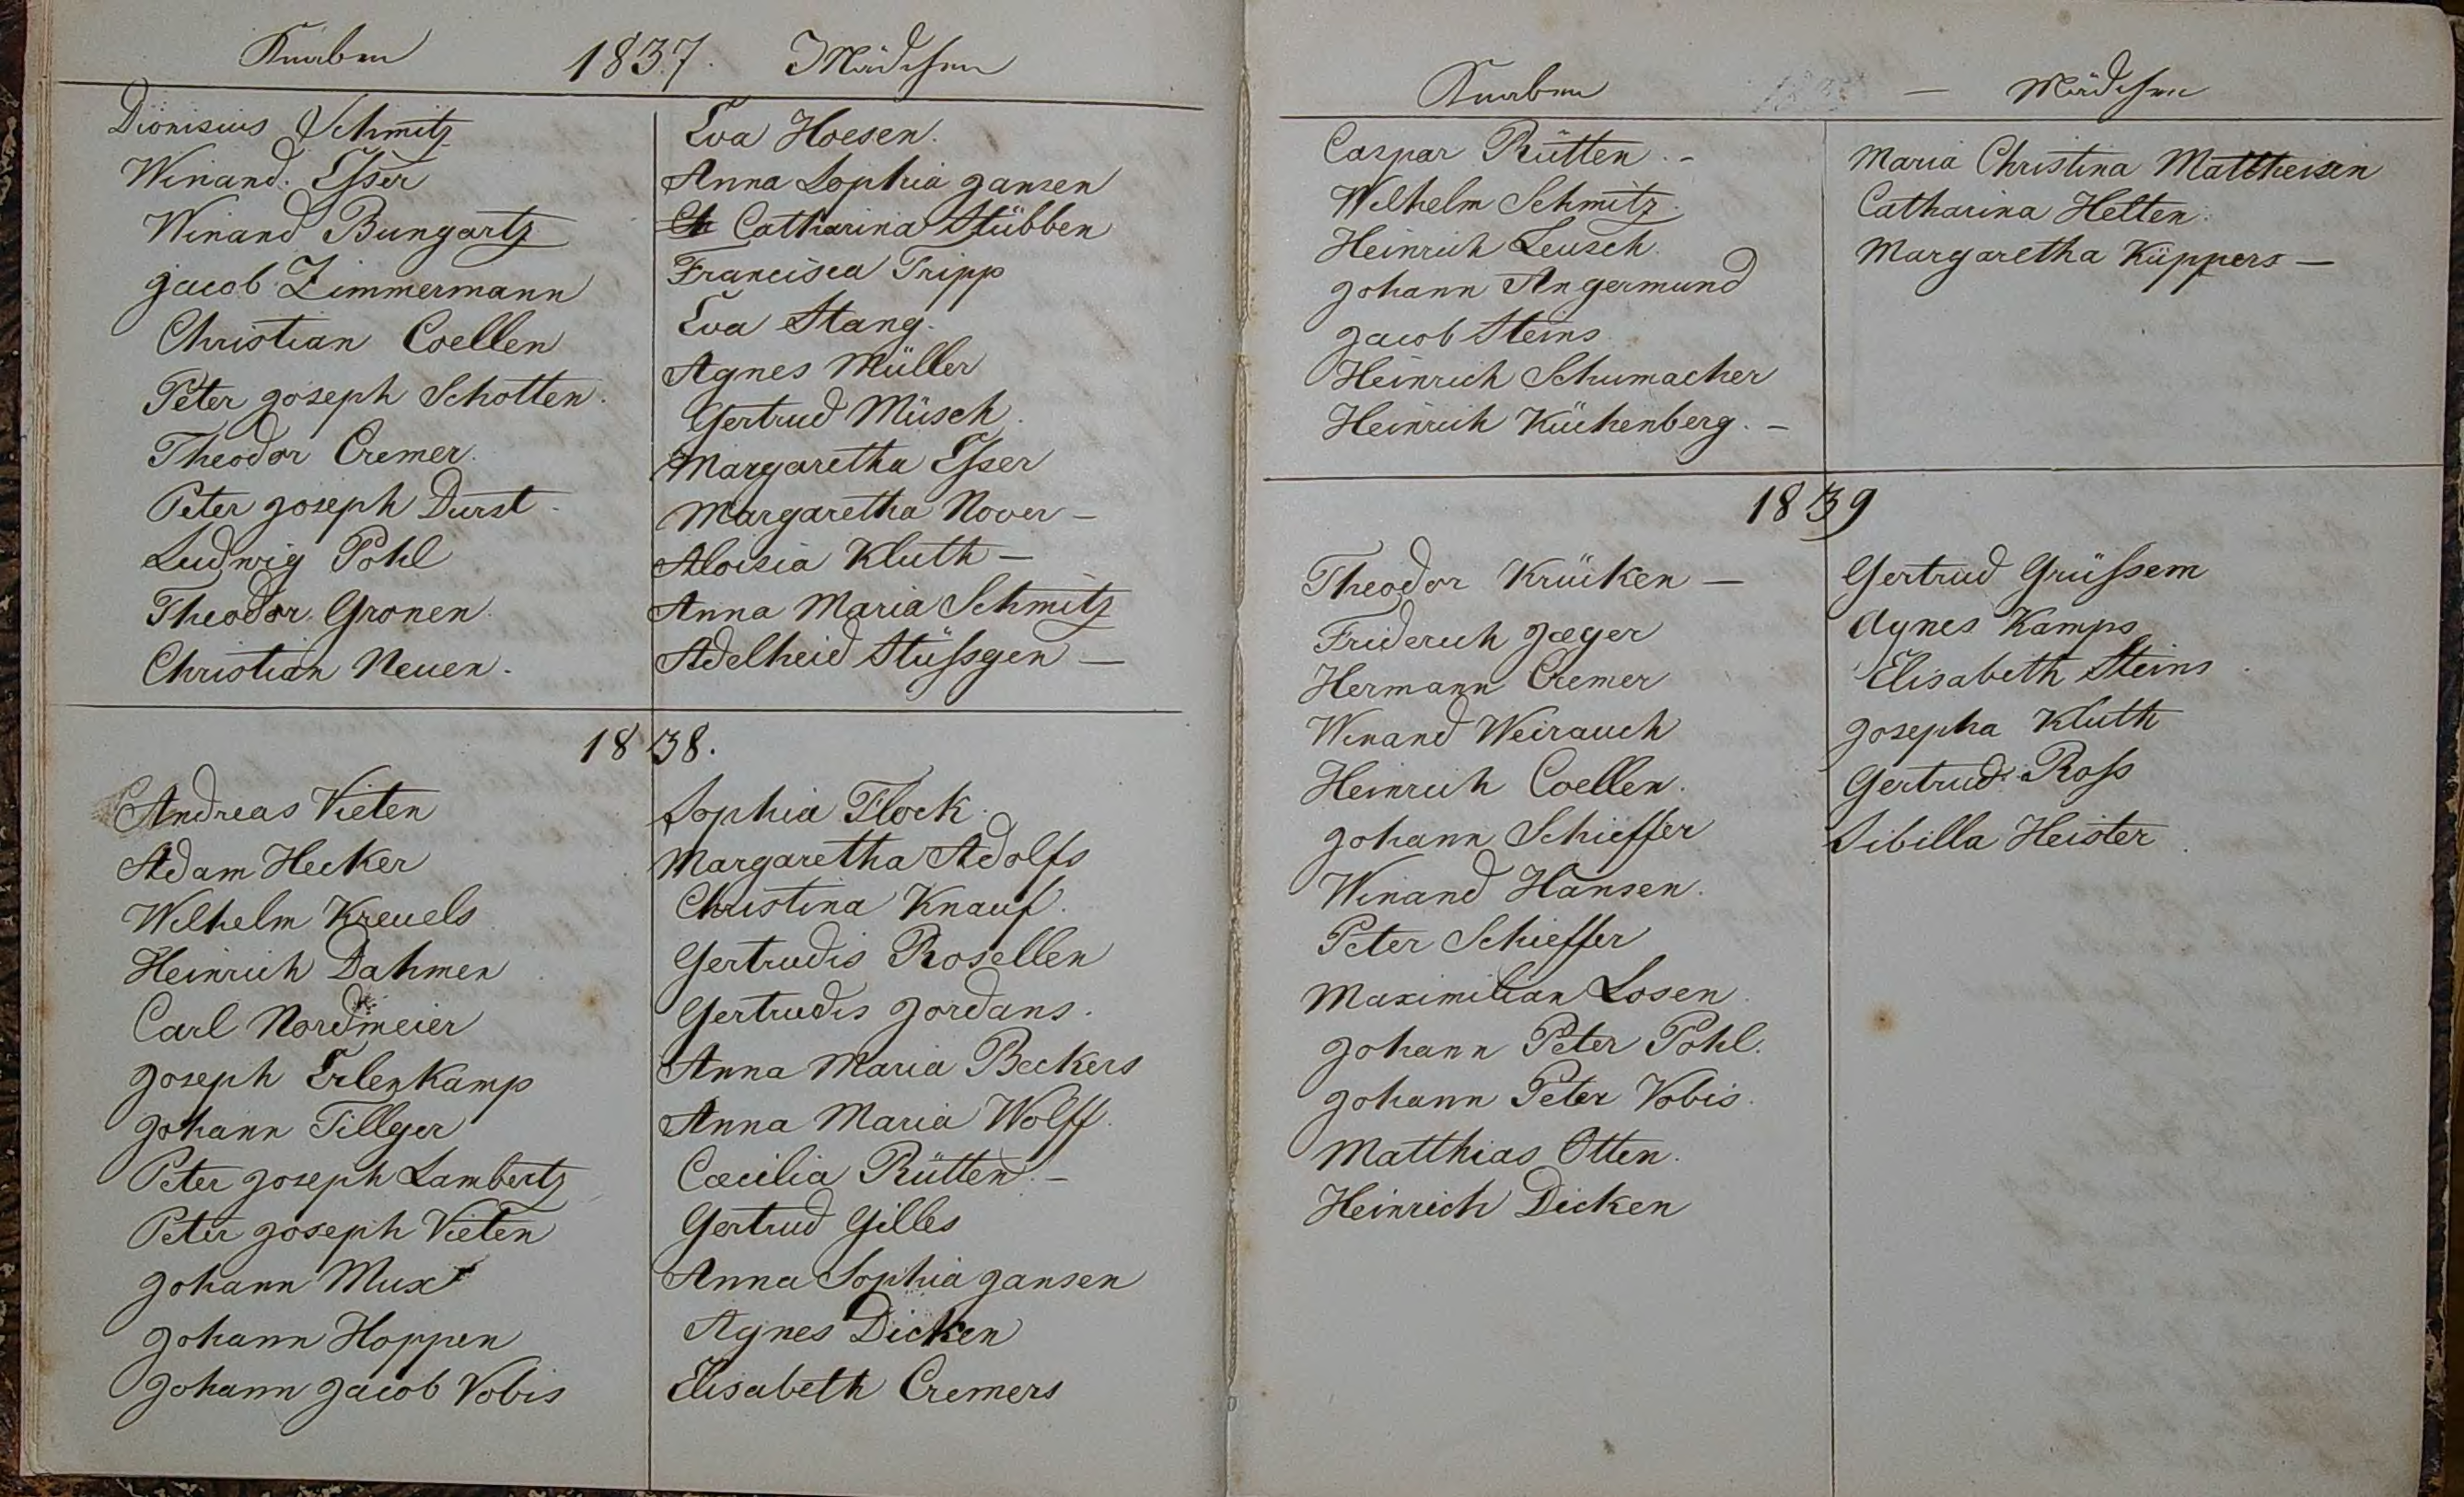 Knaben 1837. Mädchen
Dionisius Schmitz
Winand. Esser
Winand Bungartz
Jacob Zimmermann
Christian Coellen
Peter Joseph Schotten.
Theodor Cremer.
Peter Joseph Durst.
Ludwig Pohl
Theodor Gronen.
Christian Neuen.
Eva Hoesen.
Anna Sophia Jansen
Ch Catharina Stübben
Francisca Tripp
Eva Stang.
Agnes Müller
Gertrud Müsch.
Margaretha Esser
Margaretha Nover —
Aloisia Kluth —
Anna Maria Schmitz
Adelheid Stüßgen —
1838.
Andreas Vieten
Adam Hecker
Wilhelm Kreuels
Heinrich Dahmen
Carl Nordmeier
Joseph Erlenkamp
Johann Tillger
Peter Joseph Lambertz
Peter Joseph Vieten
Johann Mux
Johann Hoppen
Johann Jacob Vobis
Sophia Flock.
Margaretha Adolfs
Christina Knauf.
Gertrudis Rosellen
Gertrudis Jordans.
Anna Maria Beckers
Anna Maria Wolff.
Cæcilia Rütten. —
Gertrud Gilles
Anna Sophia Jansen
Agnes Dicken
Elisabeth Cremers
Knaben — Mädchen
Caspar Rütten. —
Wilhelm Schmitz.
Heinrich Leusch.
Johann Angermund
Jacob Steins
Heinrich Schumacher
Heinrich Küchenberg. —
Maria Christina Mattheisen
Catharina Helten.
Margaretha Küppers —
1839
Theodor Krücken —
Friderich Jæger
Hermann Cremer
Winand Weirauch
Heinrich Coellen.
Johann Schieffer
Winand Hansen.
Peter Schieffer
Maximilian Losen.
Johann Peter Pohl.
Johann Peter Vobis.
Matthias Otten.
Heinrich Dicken
Gertrud Grüßem
Agnes Kamps
Elisabeth Steins.
Josepha Kluth
Gertrud Roß
Sibilla Heister.